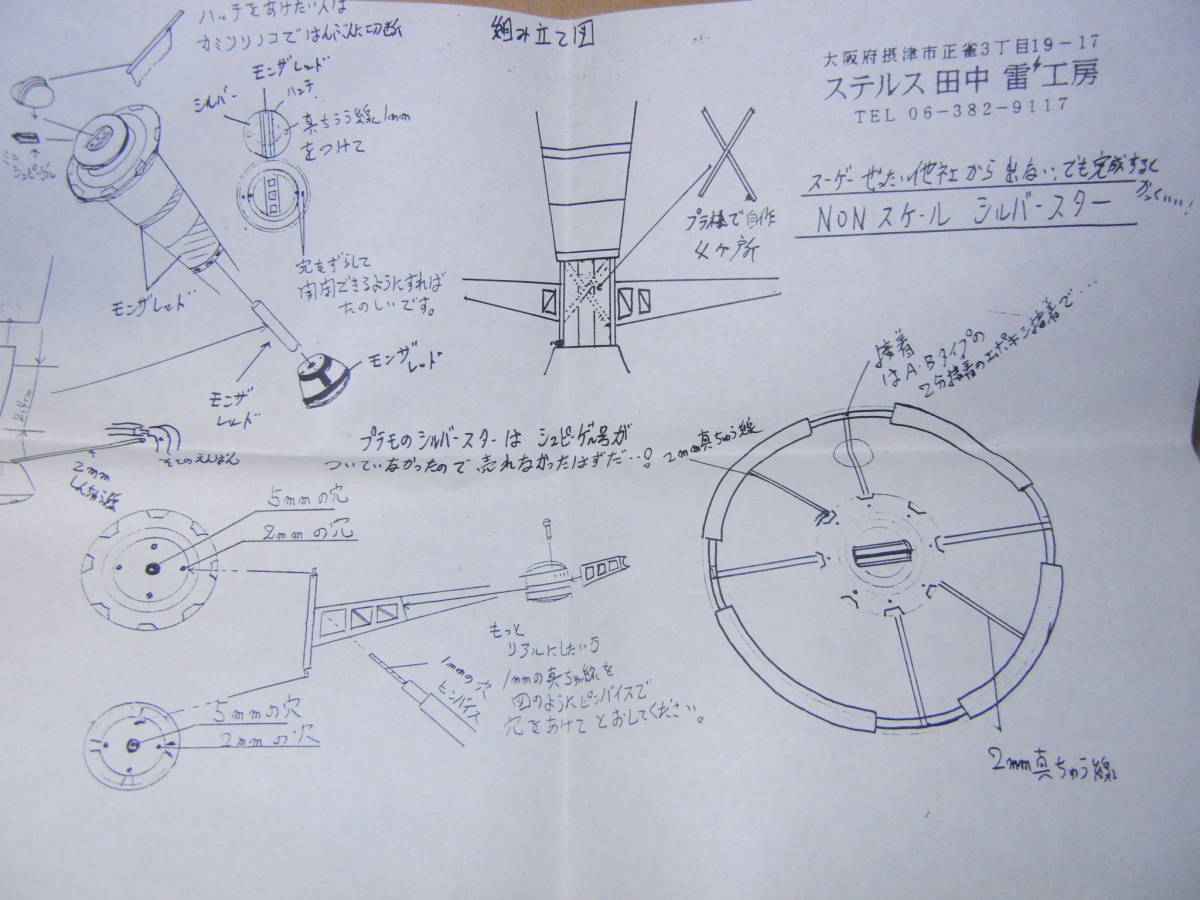 ハッチをあけたい人は
カミソリノコではんぶんに切断
組み立て図
大阪府摂津市正雀3丁目19-17
ステルス 田中 雷 工房
TEL 06-382-9117
スーゲーぜったい他社から出ない、でも完成すると
がっくい…!
NONスケール シルバースター
モンザレッド
ハッチ
シルバー
真ちゅう線1mm
をつけて
ミニ
シュピーゲル
穴をずらして
開閉できるようにすれば
たのしいです。
プラ棒で自作
4ヶ所
モンザレッド
モンザ
レッド
モンザ
レッド
接着
はA・Bタイプの
2分接着のエポキシ接着で…
プラモのシルバースターは シュピーゲル号が
ついていなかったので売れなかったはずだ…!
2mm真ちゅう線
2mm
しんちゅう線
そとのえんばん
5mmの穴
2mmの穴
もっと
リアルにしたい方
1mmの真ちゅう線を
図のようにピンバイスで
穴をあけてとおしてください。
1mmの穴
ピンバイス
5mmの穴
2mmの穴
2mm真ちゅう線